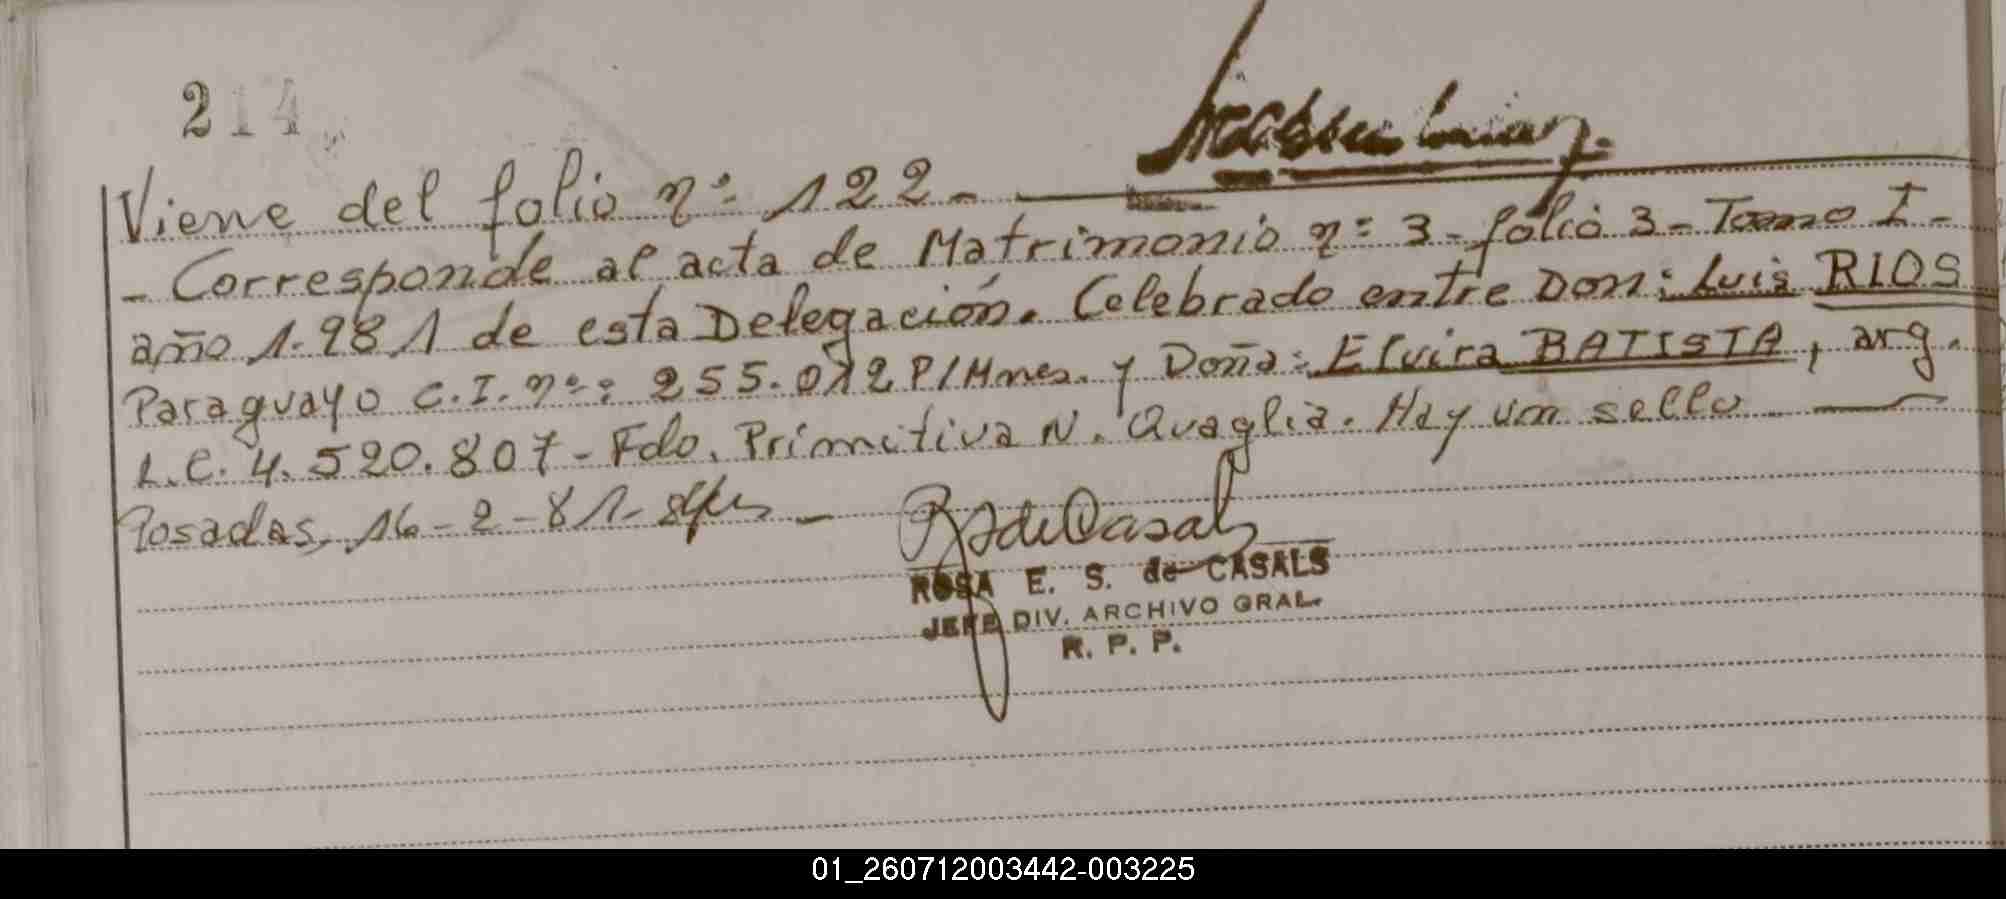 214
Viene del folio nº 122 -
- Corresponde al acta de Matrimonio nº 3 - folio 3 - Tomo I -
año 1.981 de esta Delegación. Celebrado entre Don: Luis RIOS
Paraguayo C.I. nº: 255.012 P/Mnes. y Doña: Elvira BATISTA, arg.
L.C. 4.520.807 - Fdo. Primitiva N. Quaglia. Hay un sello
Posadas, 16 - 2 - 81 -
R S de Casals
ROSA E. S. de CASALS
JEFE DIV. ARCHIVO GRAL.
R. P. P.
01_260712003442-003225